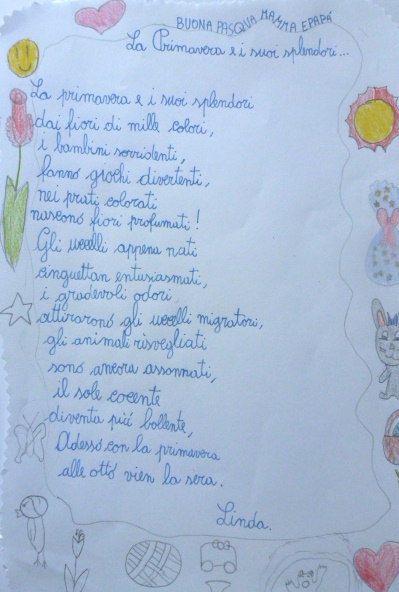 BUONA PASQUA MAMMA E PAPÁ
La Primavera e i suoi splendori...
La primavera e i suoi splendori
dai fiori di mille colori,
i bambini sorridenti,
fanno giochi divertenti,
nei prati colorati
nascono fiori profumati!
Gli uccelli appena nati
cinguettan entusiasmati,
i gradevoli odori
attirarono gli uccelli migratori,
gli animali risvegliati
sono ancora assonnati,
il sole cocente
diventa piú bollente,
Adesso con la primavera
alle otto vien la sera.
Linda.